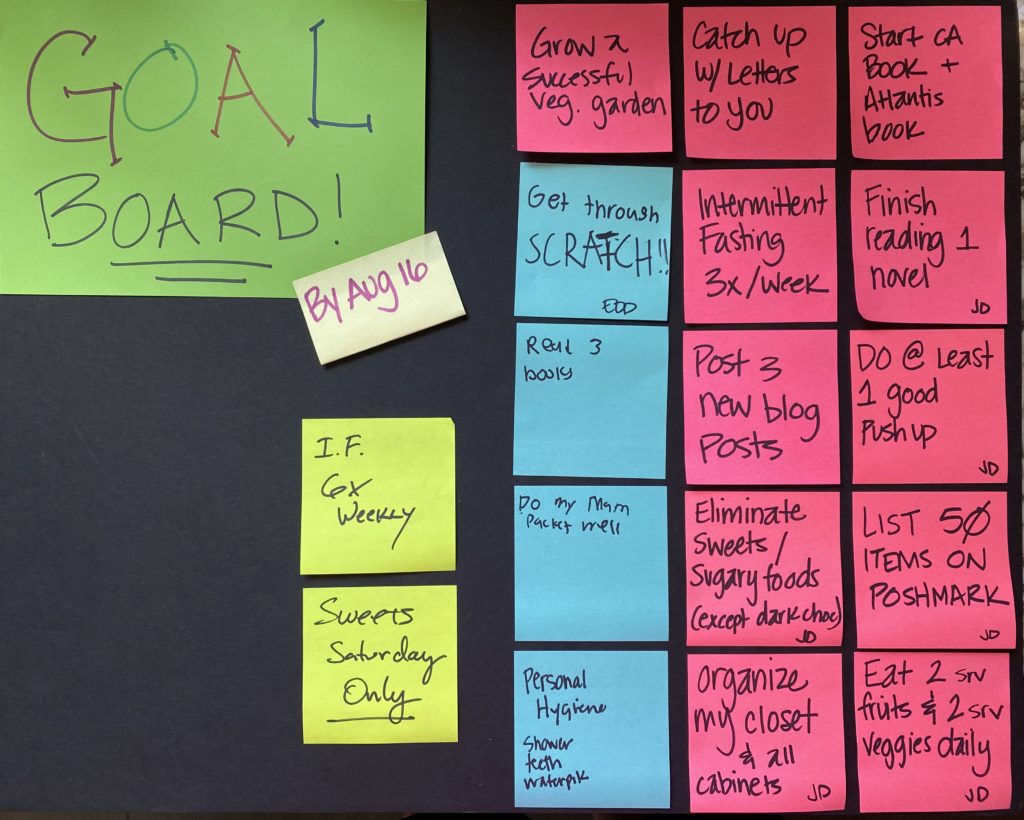 GOAL
BOARD!
By Aug 16
I.F.
6x
Weekly
Sweets
Saturday
Only
Grow a
successful
veg. garden
Get through
SCRATCH!!
EOD
Read 3
books
Do my Mam
Packet well
Personal
Hygiene
shower
teeth
waterpik
Catch up
w/ Letters
to you
Intermittent
Fasting
3x/week
Post 3
new blog
Posts
Eliminate
Sweets/
Sugary foods
(except dark choc)
JD
Organize
my closet
& all
cabinets
JD
Start CA
Book +
Atlantis
book
Finish
reading 1
novel
JD
DO @ Least
1 good
Push up
JD
LIST 50
ITEMS ON
POSHMARK
JD
Eat 2 srv
fruits & 2 srv
veggies daily
JD